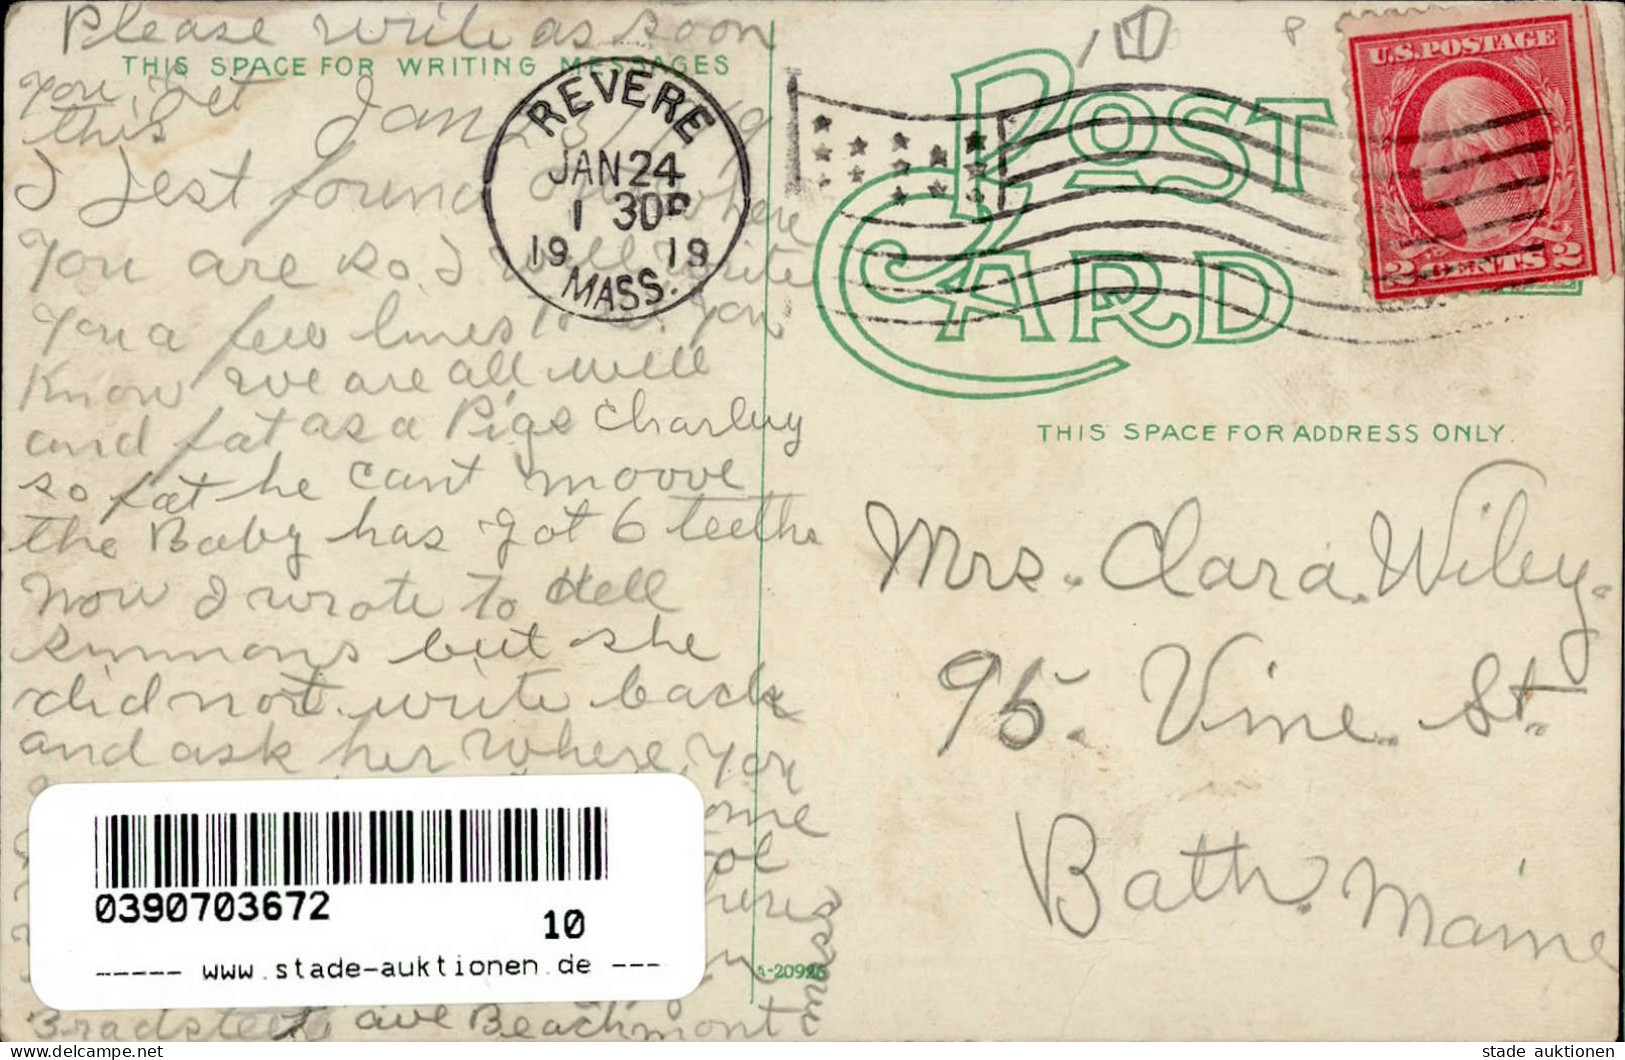 Please write as soon
THIS SPACE FOR WRITING MESSAGES
you get
this Jan 23/19
I Jest found out where
You are so I will write
You a few lines to let you
Know we are all well
and fat as a Pigs Charley
so fat he cant moove
the Baby has got 6 teeths
now I wrote to dell
simmons but she
did not write back
and ask her where you
ome
ool
heres
Bradsteet ave Beachmont
Mass
REVERE
JAN 24
1 30P
19 19
MASS.
POST CARD
U.S. POSTAGE
2 CENTS 2
THIS SPACE FOR ADDRESS ONLY.
Mrs. Clara. Wiley.
95. Vine. St.
Bath. Maine
0390703672
10
----- www.stade-auktionen.de ---
delcampe.net
stade_auktionen